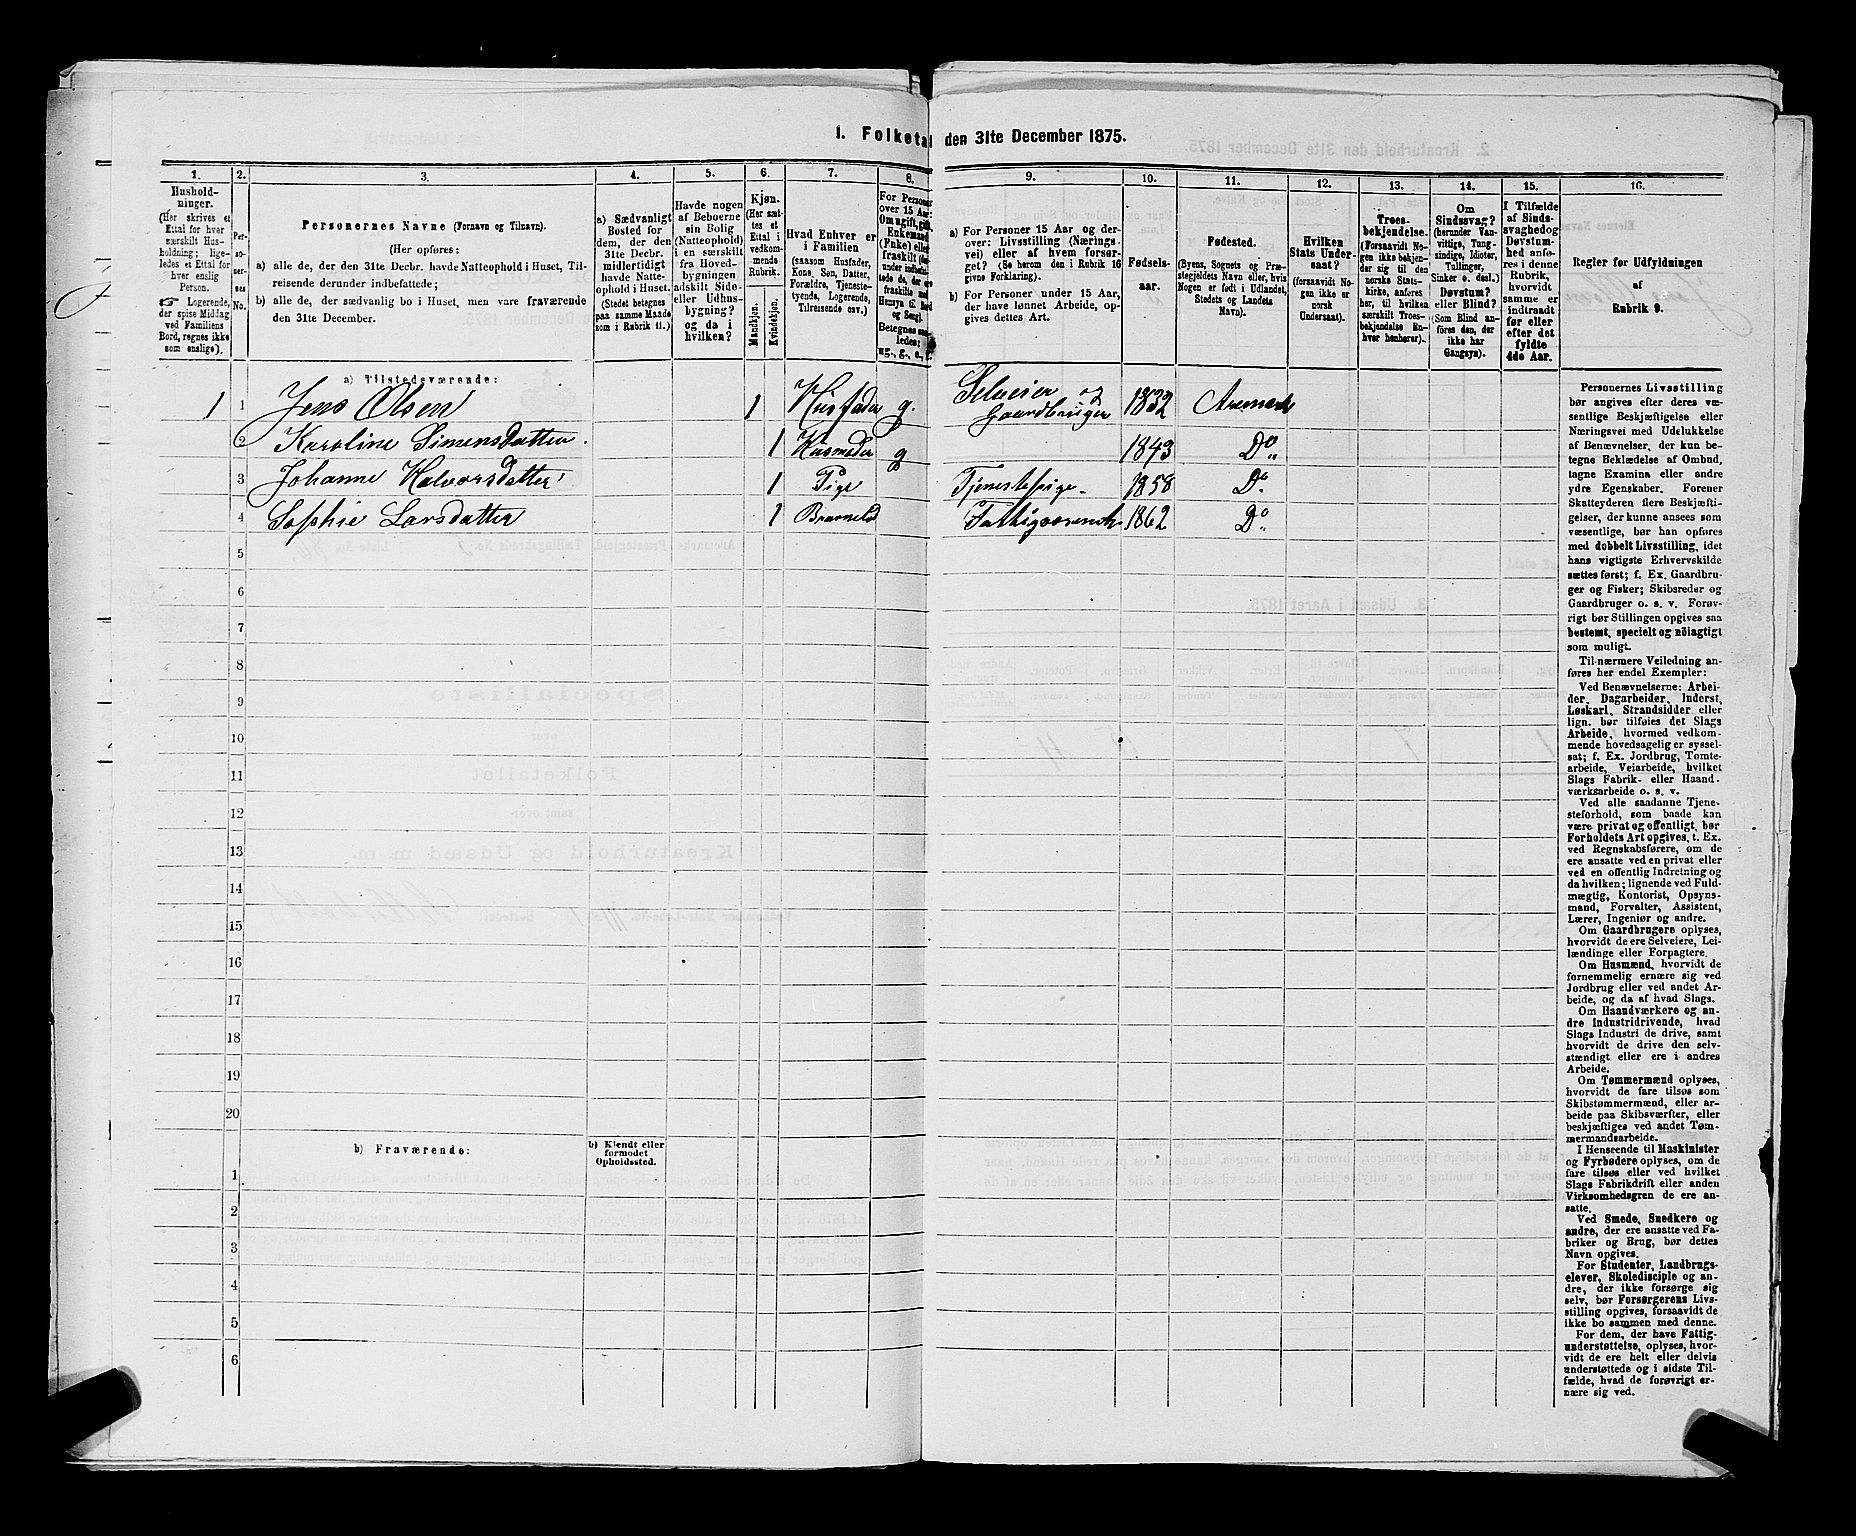 1. Folketal den 31te December 1875.
1.
Hushold-
ninger.
(Her skrives et
Ettal for hver
særskilt Hus-
holdning; lige-
ledes et Ettal for
hver enslig
Person.
Logerende,
der spise Middag
ved Familiens
Bord, regnes ikke
som enslige).
2.
Per-
soner-
nes
No.
3.
Personernes Navne (Fornavn og Tilnavn).
(Her opføres:
a) alle de, der den 31te Decbr. havde Natteophold i Huset, Til-
reisende derunder indbefattede;
b) alle de, der sædvanlig bo i Huset, men vare fraværende
den 31te December.
4.
a) Sædvanligt
Bosted for
dem, der den
31te Decbr.
midlertidigt
havde Natte-
ophold i Huset.
(Stedet betegnes
paa samme Maade
som i Rubrik 11.)
5.
Havde nogen
af Beboerne
sin Bolig
(Natteophold)
i en særskilt
fra Hoved-
bygningen
adskilt Side-
eller Udhus-
bygning?
og da i
hvilken?
6.
Kjøn.
(Her sæt-
tes et
Ettal i
vedkom-
mende
Rubrik.
Mandkjøn.
Kvindekjøn.
7.
Hvad Enhver er
i Familien
(saasom Husfader,
Kone, Søn, Datter,
Forældre, Tjeneste-
tyende, Logerende,
Tilreisende osv.)
8.
For Personer
over 15 Aar:
Om ugift, gift,
Enkemand
(Enke) eller
fraskilt
Betegnes saa-
ledes:
ug., g., e., f.
9.
a) For Personer 15 Aar og der-
over: Livsstilling (Nærings-
vei) eller af hvem forsør-
get? (Se herom den i Rubrik 16
givne Forklaring).
b) For Personer under 15 Aar,
der have lønnet Arbeide, op-
gives dettes Art.
10.
Fødsels-
aar.
11.
Fødested.
(Byens, Sognets og Præ-
stegjeldets Navn eller, hvis
Nogen er født i Udlandet,
Stedets og Landets
Navn).
12.
Hvilken
Stats Under-
saat?
(forsaavidt No-
gen ikke er
norsk
Undersaat).
13.
Troes-
bekjendelse.
(Forsaavidt No-
gen ikke bekjen-
der sig til den
norske Stats-
kirke, anføres
her, til hvilken
særskilt Troes-
bekjendelse En-
hver henhører).
14.
Om
Sindssvag?
(herunder Van-
vittige, Tung-
sindige, Idioter,
Tullinger,
Sinker o. desl.)
Døvstum?
eller Blind?
(Som Blind an-
føres den, der
ikke har
Gangsyn).
15.
I Tilfælde
af Sinds-
svaghed og
Døvstum-
hed anfø-
res i denne
Rubrik,
hvorvidt
samme er
indtraadt
før eller
efter det
fyldte
4de Aar.
16.
Regler for Udfyldningen
af
Rubrik 9.
a) Tilstedeværende:
1 1 Jens Olsen 1 Husfader g. Selveier og Gaardbruger 1832 Aremark
2 Karoline Simensdatter. 1 Husmoder g 1843 Do
3 Johanne Halvorsdatter 1 Pige Tjenestepige 1858 Do
4 Sophie Larsdatter 1 1862 Do
5
6
7
8
9
10
11
12
13
14
15
16
17
18
19
20
b) Fraværende:
b) Kjendt eller
formodet
Opholdssted.
1
2
3
4
5
6
Personernes Livsstilling
bør angives efter deres væ-
sentlige Beskjæftigelse eller
Næringsvei med Udelukkelse
af Benævnelser, der kun be-
tegne Beklædelse af Ombud,
tagne Examina eller andre
ydre Egenskaber. Forener
Skatteyderen flere Beskjæfti-
gelser, der kunne ansees som
væsentlige, bør han opføres
med dobbelt Livsstilling, idet
hans vigtigste Erhvervskilde
sættes først; f. Ex. Gaardbru-
ger og Fisker; Skibsreder og
Gaardbruger o. s. v. Forøv-
rigt bør Stillingen opgives saa
bestemt, specielt og nöiagtigt
som muligt.
Til nærmere Veiledning an-
føres her endel Exempler:
Ved Benævnelserne: Arbei-
der, Dagarbeider, Inderst,
Løskarl, Strandsidder eller
lign. bør tilføies det Slags
Arbeide, hvormed vedkom-
mende hovedsagelig er syssel-
sat; f. Ex. Jordbrug, Tomte-
arbeide, Veiarbeide, hvilket
Slags Fabrik- eller Haand-
værksarbeide o. s. v.
Ved alle saadanne Tjene-
steforhold, som baade kan
være privat og offentligt, bør
Forholdets Art opgives, t. Ex.
ved Regnskabsførere, om de
ere ansatte ved en privat eller
ved en offentlig Indretning og
da hvilken; lignende ved Fuld-
mægtig, Kontorist, Opsyns-
mand, Forvalter, Assistent,
Lærer, Ingeniør og andre.
Om Gaardbrugere oplyses,
hvorvidt de ere Selveiere, Lei-
lændinge eller Forpagtere.
Om Husmænd, hvorvidt de
fornemmelig ernære sig ved
Jordbrug eller ved andet Ar-
beide, og da af hvad Slags.
Om Haandværkere og an-
dre Industridrivende, hvad
Slags Industri de drive, samt
hvorvidt de drive den selv-
stændigt eller ere i andres
Arbeide.
Om Tømmermænd oplyses,
hvorvidt de fare tilsøs som
Skibstømmermænd, eller ar-
beide paa Skibsværfter, eller
beskjæftiges ved andet Tøm-
mermandsarbeide.
I Henseende til Maskinister
og Fyrbødere oplyses, om de
fare tilsøs eller ved hvilket
Slags Fabrikdrift eller anden
Virksomhedsgren de ere an-
satte.
Ved Smede, Snedkere og
andre, der ere ansatte ved Fa-
briker og Brug, bør dettes
Navn opgives.
For Studenter, Landbrugs-
elever, Skoledisciple og an-
dre, der ikke forsørge sig
selv, bør Forsørgerens Livs-
stilling opgives, forsaavidt de
ikke bo sammen med denne.
For dem, der have Fattig-
understøttelse, oplyses, hvor-
vidt de ere helt eller delvis
understøttede og i sidste Til-
fælde, hvad de forøvrigt er-
nære sig ved.